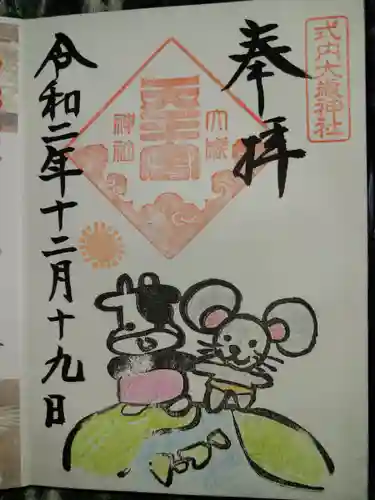 式内大歳神社
奉拝
大歳
神社
天王宮
令和二年十二月十九日